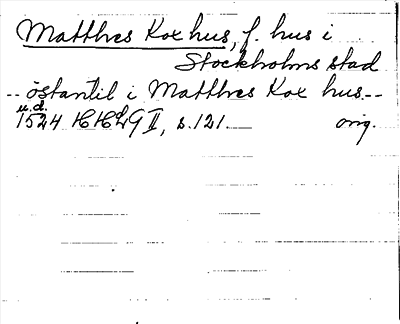 Matthes Kox hus, f. hus i
Stockholms stad
-- östantil i Matthes Kox hus --
u.d.
1524 HHLG II, s. 121. orig.